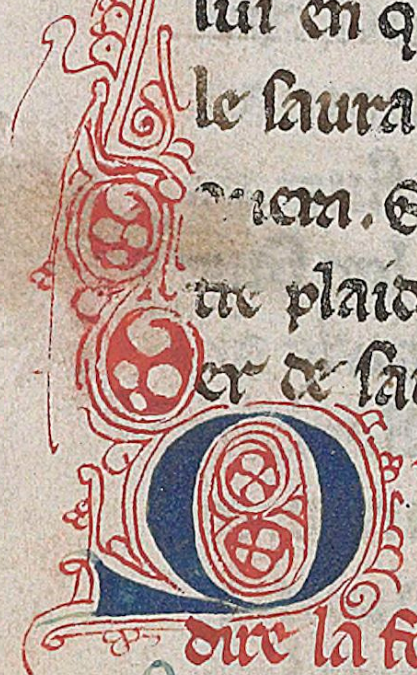 lui en q
le saura
uiem. E
tte plaid
er de sa
Q
dire la fe